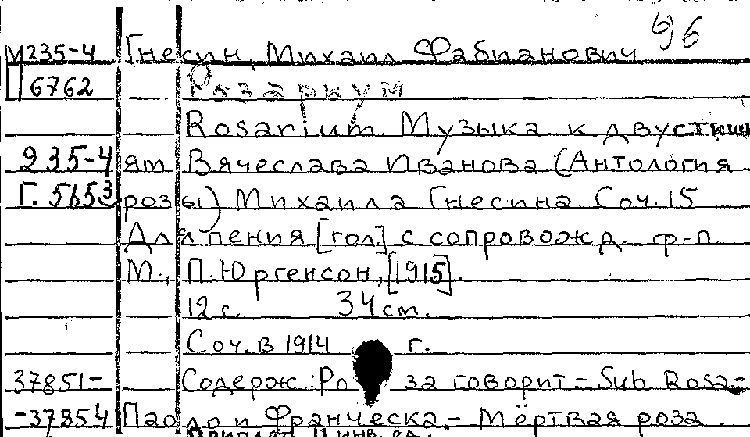 96
М235-4 Гнесин, Михаил Фабианович
6762 Розариум
Rosarium Музыка к двустиши
235-4 ям Вячеслава Иванова (Антология
Г.5653 розы) Михаила Гнесина Соч. 15
Для пения [гол.] с сопровожд. ф-п.
М., П. Юргенсон, [1915].
12 с. 34 см.
Соч. в 1914 г.
37851- Содерж: Ро за говорит – Sub Rosa –
-37854 Паоло и Франческа – Мёртвая роза.